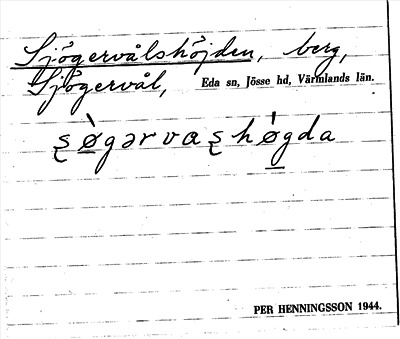 Sjögervålshöjden, berg,
Sjögervål, Eda sn, Jösse hd, Värmlands län.
ʂø̀gərvaʂhø̀gda
PER HENNINGSSON 1944.